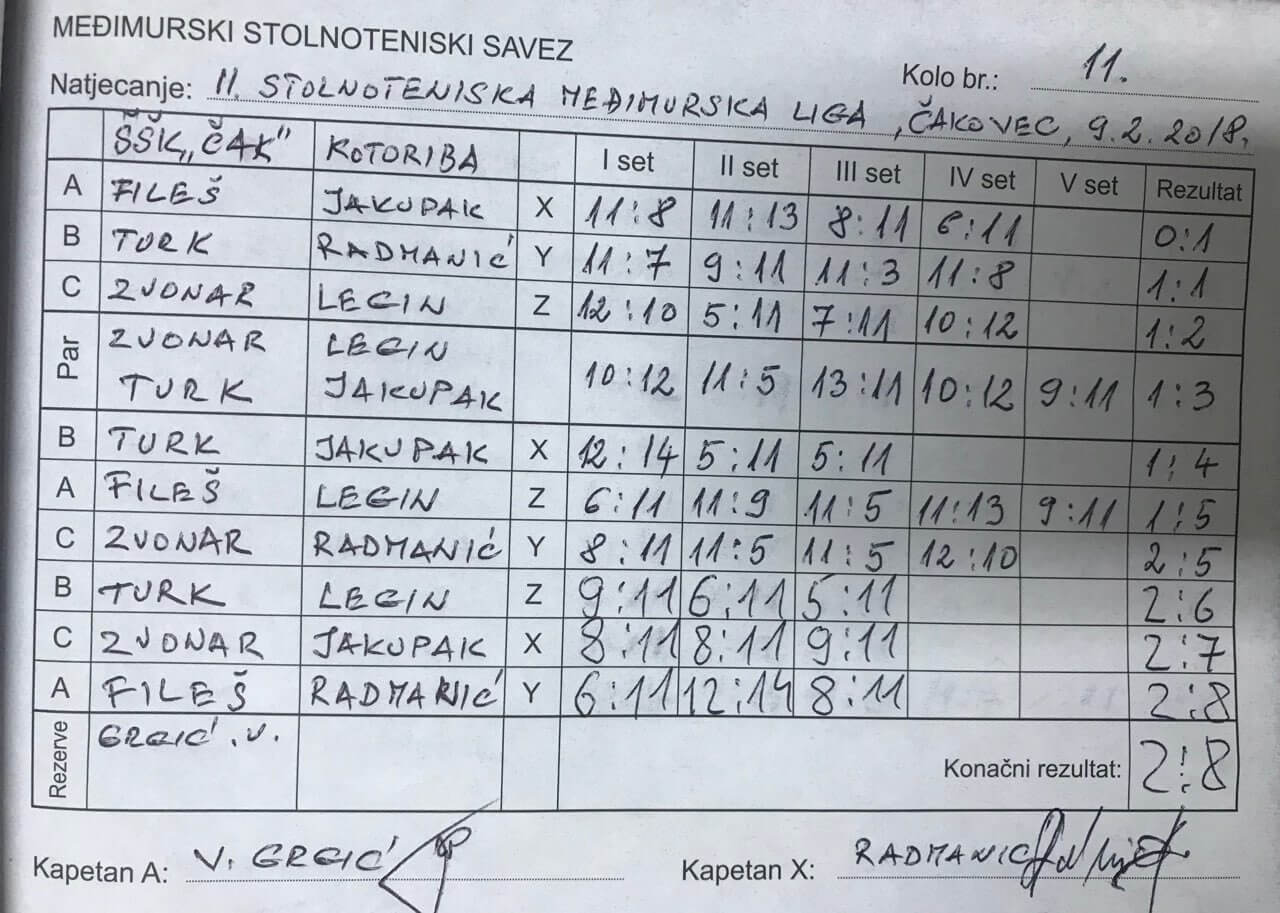 MEĐIMURSKI STOLNOTENISKI SAVEZ
Kolo br.: 11.
Natjecanje: II. STOLNOTENISKA MEĐIMURSKA LIGA, ČAKOVEC, 9.2.2018.
ŠŠK„ČAK" KOTORIBA I set II set III set IV set V set Rezultat
A FILEŠ JAKUPAK X 11:8 11:13 8:11 6:11 0:1
B TURK RADMANIĆ Y 11:7 9:11 11:3 11:8 1:1
C ZVONAR LEGIN Z 12:10 5:11 7:11 10:12 1:2
Par ZVONAR LEGIN
TURK JAKUPAK 10:12 11:5 13:11 10:12 9:11 1:3
B TURK JAKUPAK X 12:14 5:11 5:11 1:4
A FILEŠ LEGIN Z 6:11 11:9 11:5 11:13 9:11 1:5
C ZVONAR RADMANIĆ Y 8:11 11:5 11:5 12:10 2:5
B TURK LEGIN Z 9:11 6:11 5:11 2:6
C ZVONAR JAKUPAK X 8:11 8:11 9:11 2:7
A FILEŠ RADMANIĆ Y 6:11 12:14 8:11 2:8
Rezerve GRGIĆ.V.
Konačni rezultat: 2:8
Kapetan A: V. GRGIĆ
Kapetan X: RADMANIĆ